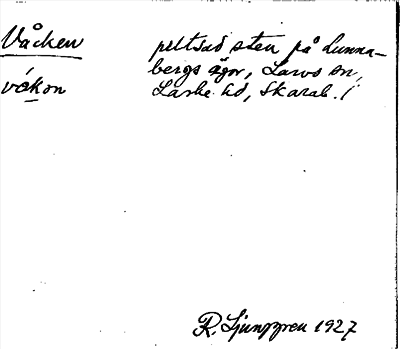 Våcken
petsad sten på Lunna-
bergs ägor, Larvs sn,
våkon
Laske hd, Skarab. l
R. Ljunggren 1927